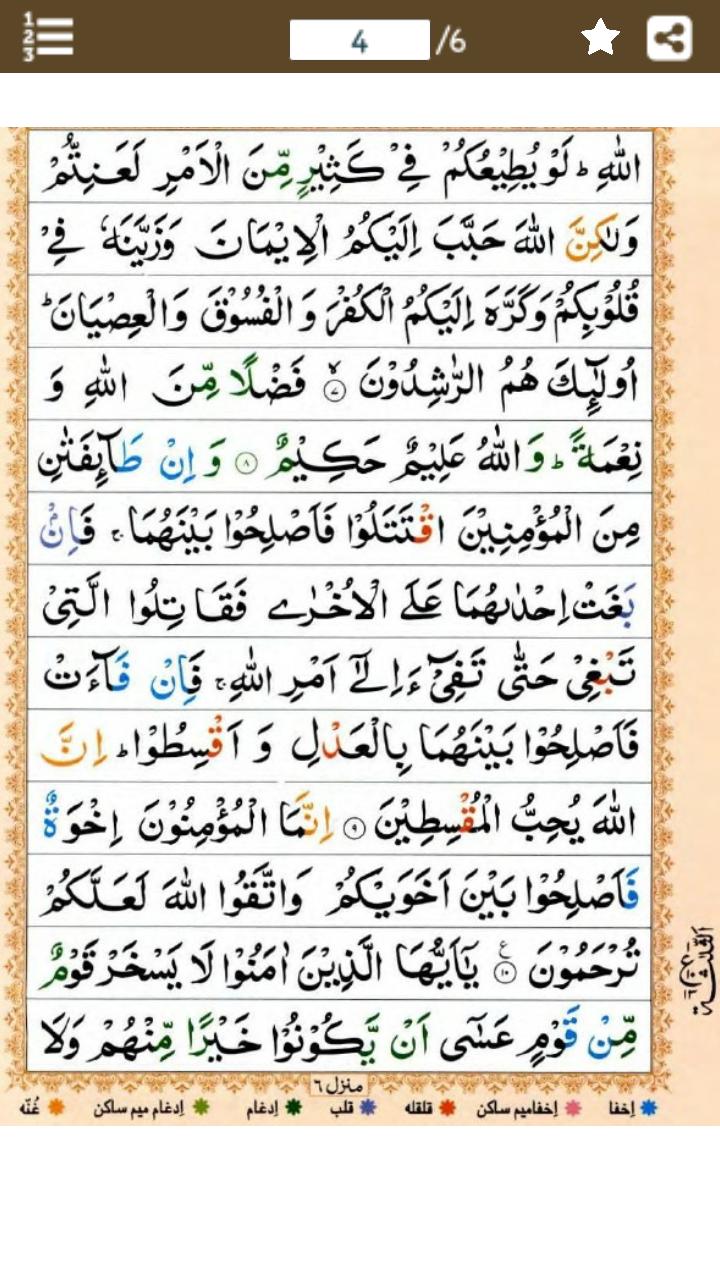 1
2
3
4 /6
اللّٰهِ ؕ لَوْ يُطِيْعُكُمْ فِيْ كَثِيْرٍ مِّنَ الْاَمْرِ لَعَنِتُّمْ
وَلٰكِنَّ اللّٰهَ حَبَّبَ اِلَيْكُمُ الْاِيْمَانَ وَزَيَّنَهٗ فِيْ
قُلُوْبِكُمْ وَكَرَّهَ اِلَيْكُمُ الْكُفْرَ وَ الْفُسُوْقَ وَالْعِصْيَانَ ؕ
اُولٰٓئِكَ هُمُ الرّٰشِدُوْنَ ۙ ۷ فَضْلًا مِّنَ اللّٰهِ وَ
نِعْمَةً ؕ وَ اللّٰهُ عَلِيْمٌ حَكِيْمٌ ۸ وَ اِنْ طَآئِفَتٰنِ
مِنَ الْمُؤْمِنِيْنَ اقْتَتَلُوْا فَاَصْلِحُوْا بَيْنَهُمَا ۚ فَاِنْۢ
بَغَتْ اِحْدٰىهُمَا عَلَى الْاُخْرٰى فَقَاتِلُوا الَّتِيْ
تَبْغِيْ حَتّٰى تَفِيْٓءَ اِلٰٓى اَمْرِ اللّٰهِ ۚ فَاِنْ فَآءَتْ
فَاَصْلِحُوْا بَيْنَهُمَا بِالْعَدْلِ وَ اَقْسِطُوْا ؕ اِنَّ
اللّٰهَ يُحِبُّ الْمُقْسِطِيْنَ ۹ اِنَّمَا الْمُؤْمِنُوْنَ اِخْوَةٌ
فَاَصْلِحُوْا بَيْنَ اَخَوَيْكُمْ وَاتَّقُوا اللّٰهَ لَعَلَّكُمْ
تُرْحَمُوْنَ ۱۰ يٰۤاَيُّهَا الَّذِيْنَ اٰمَنُوْا لَا يَسْخَرْ قَوْمٌ
مِّنْ قَوْمٍ عَسٰٓى اَنْ يَّكُوْنُوْا خَيْرًا مِّنْهُمْ وَلَا
منزل ٦
اِخفا اِخفامیم ساکن قلقله قلب اِدغام اِدغام میم ساکن غُنّه